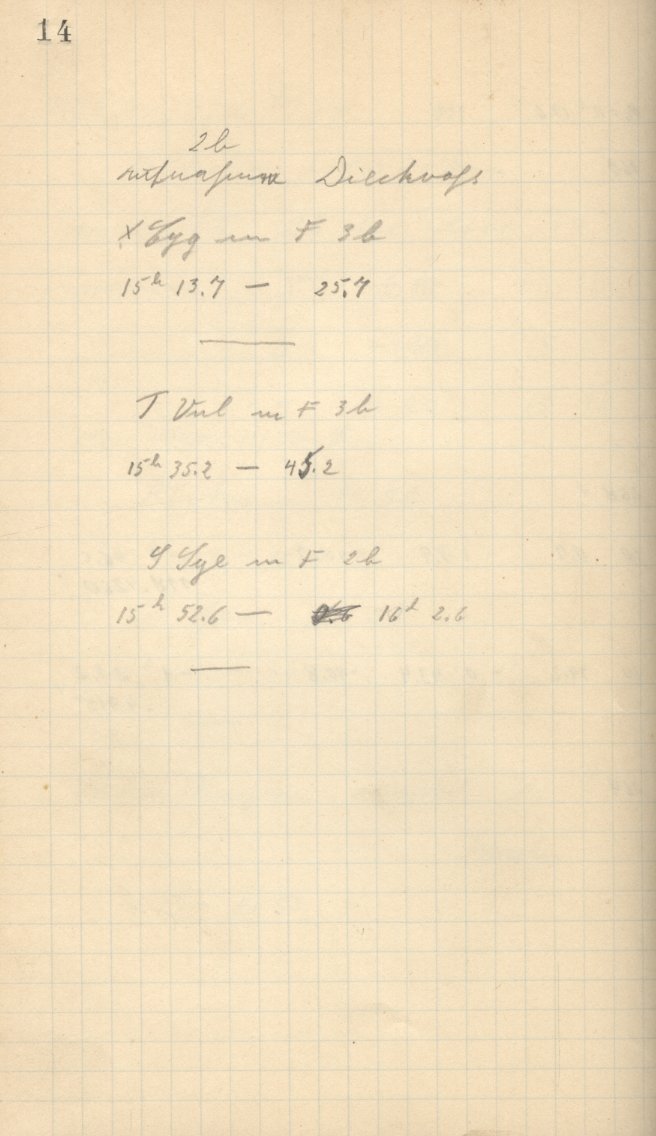 14
2b
Aufnahmen Dieckvoss
X Cyg m F 3b
15h 13.7 — 25.7
T Vul m F 3b
15h 35.2 — 45.2
S Sge m F 2b
15h 52.6 — 16h 2.6